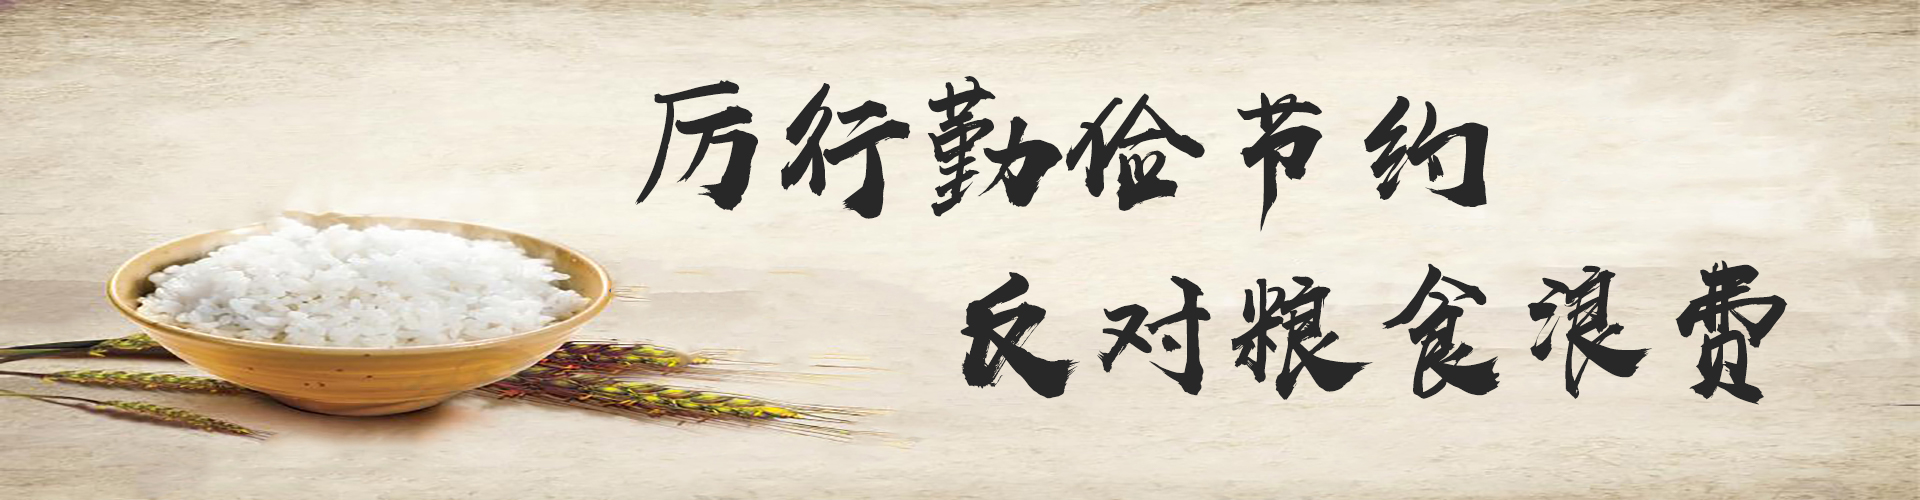 厉行勤俭节约
反对粮食浪费